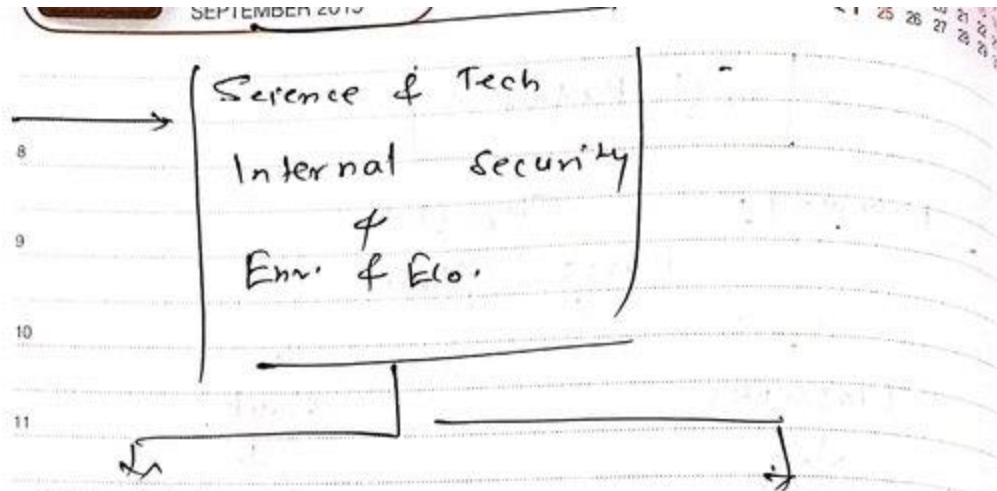 SEPTEMBER 2015
25 26 27 28 29
21 22
Science & Tech
8
Internal Security
&
9
Env. & Eco.
10
11